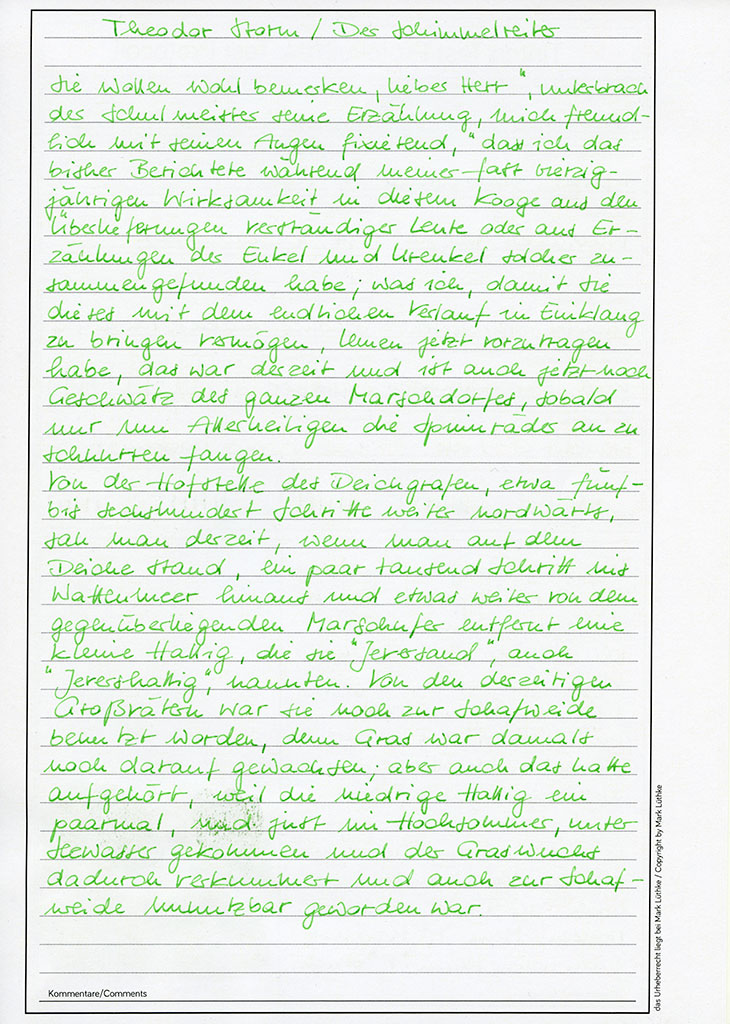 Theodor Storm / Der Schimmelreiter
Sie wollen wohl bemerken, lieber Herr", unterbrach
der Schulmeister seine Erzählung, mich freund-
lich mit seinen Augen fixierend, "dass ich das
bisher Berichtete während meiner fast vierzig-
jährigen Wirksamkeit in diesem Kooge aus den
Überlieferungen verständiger Leute oder aus Er-
zählungen der Enkel und Urenkel solcher zu-
sammengefunden habe; was ich, damit Sie
dieses mit dem endlichen Verlauf in Einklang
zu bringen vermögen, Ihnen jetzt vorzutragen
habe, das war derzeit und ist auch jetzt noch
Geschwätz des ganzen Marschdorfes, sobald
nur um Allerheiligen die Spinnräder an zu
schnurren fangen.
Von der Hofstelle des Deichgrafen, etwa fünf-
bis sechshundert Schritte weiter nordwärts,
sah man derzeit, wenn man auf dem
Deiche stand, ein paar tausend Schritt ins
Wattenmeer hinaus und etwas weiter von dem
gegenüberliegenden Marschufer entfernt eine
kleine Hallig, die sie "Jeverssand", auch
"Jevershallig", nannten. Von den derzeitigen
Großvätern war sie noch zur Schafweide
benutzt worden, denn Gras war damals
noch darauf gewachsen; aber auch das hatte
aufgehört, weil die niedrige Hallig ein
paarmal, und just im Hochsommer, unter
Seewasser gekommen und der Graswuchs
dadurch verkümmert und auch zur Schaf-
weide unnutzbar geworden war.
Kommentare/Comments
das Urheberrecht liegt bei Mark Lüthke / Copyright by Mark Lüthke